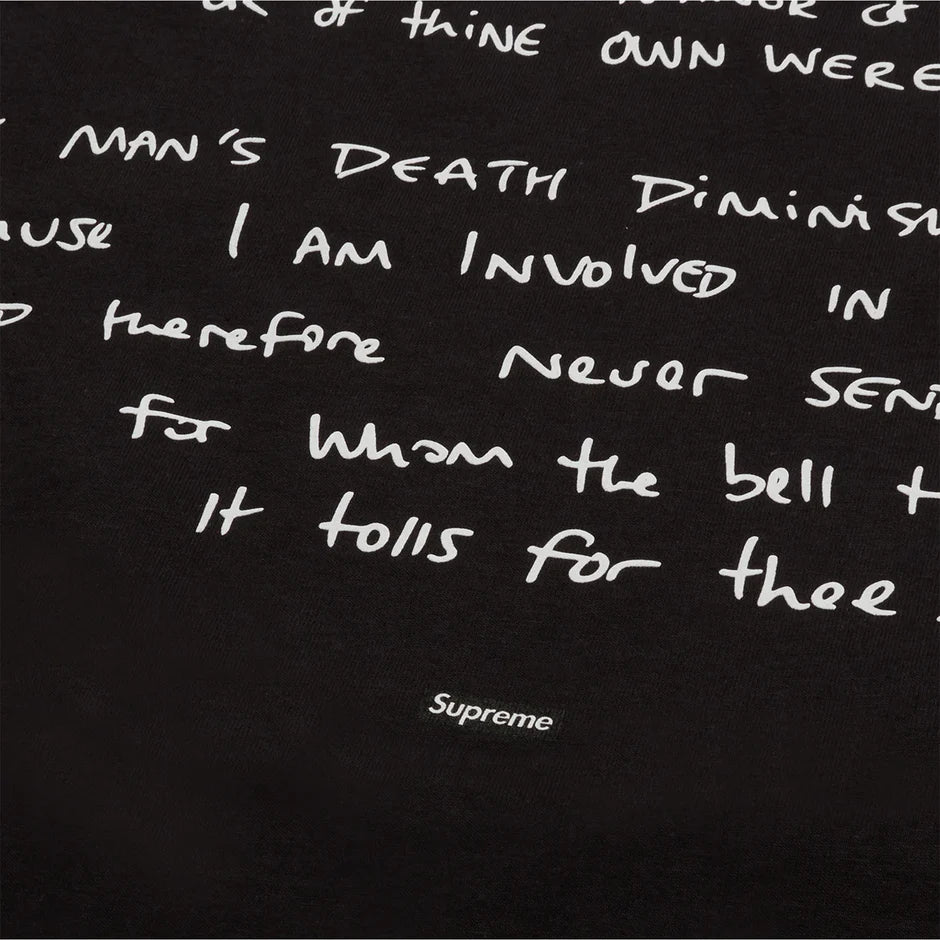 OR OF THINE OWN WERE
MAN'S DEATH DIMINIS
I AM INVOLVED IN
therefore Never SEN
for whom the bell
It tolls for thee
Supreme